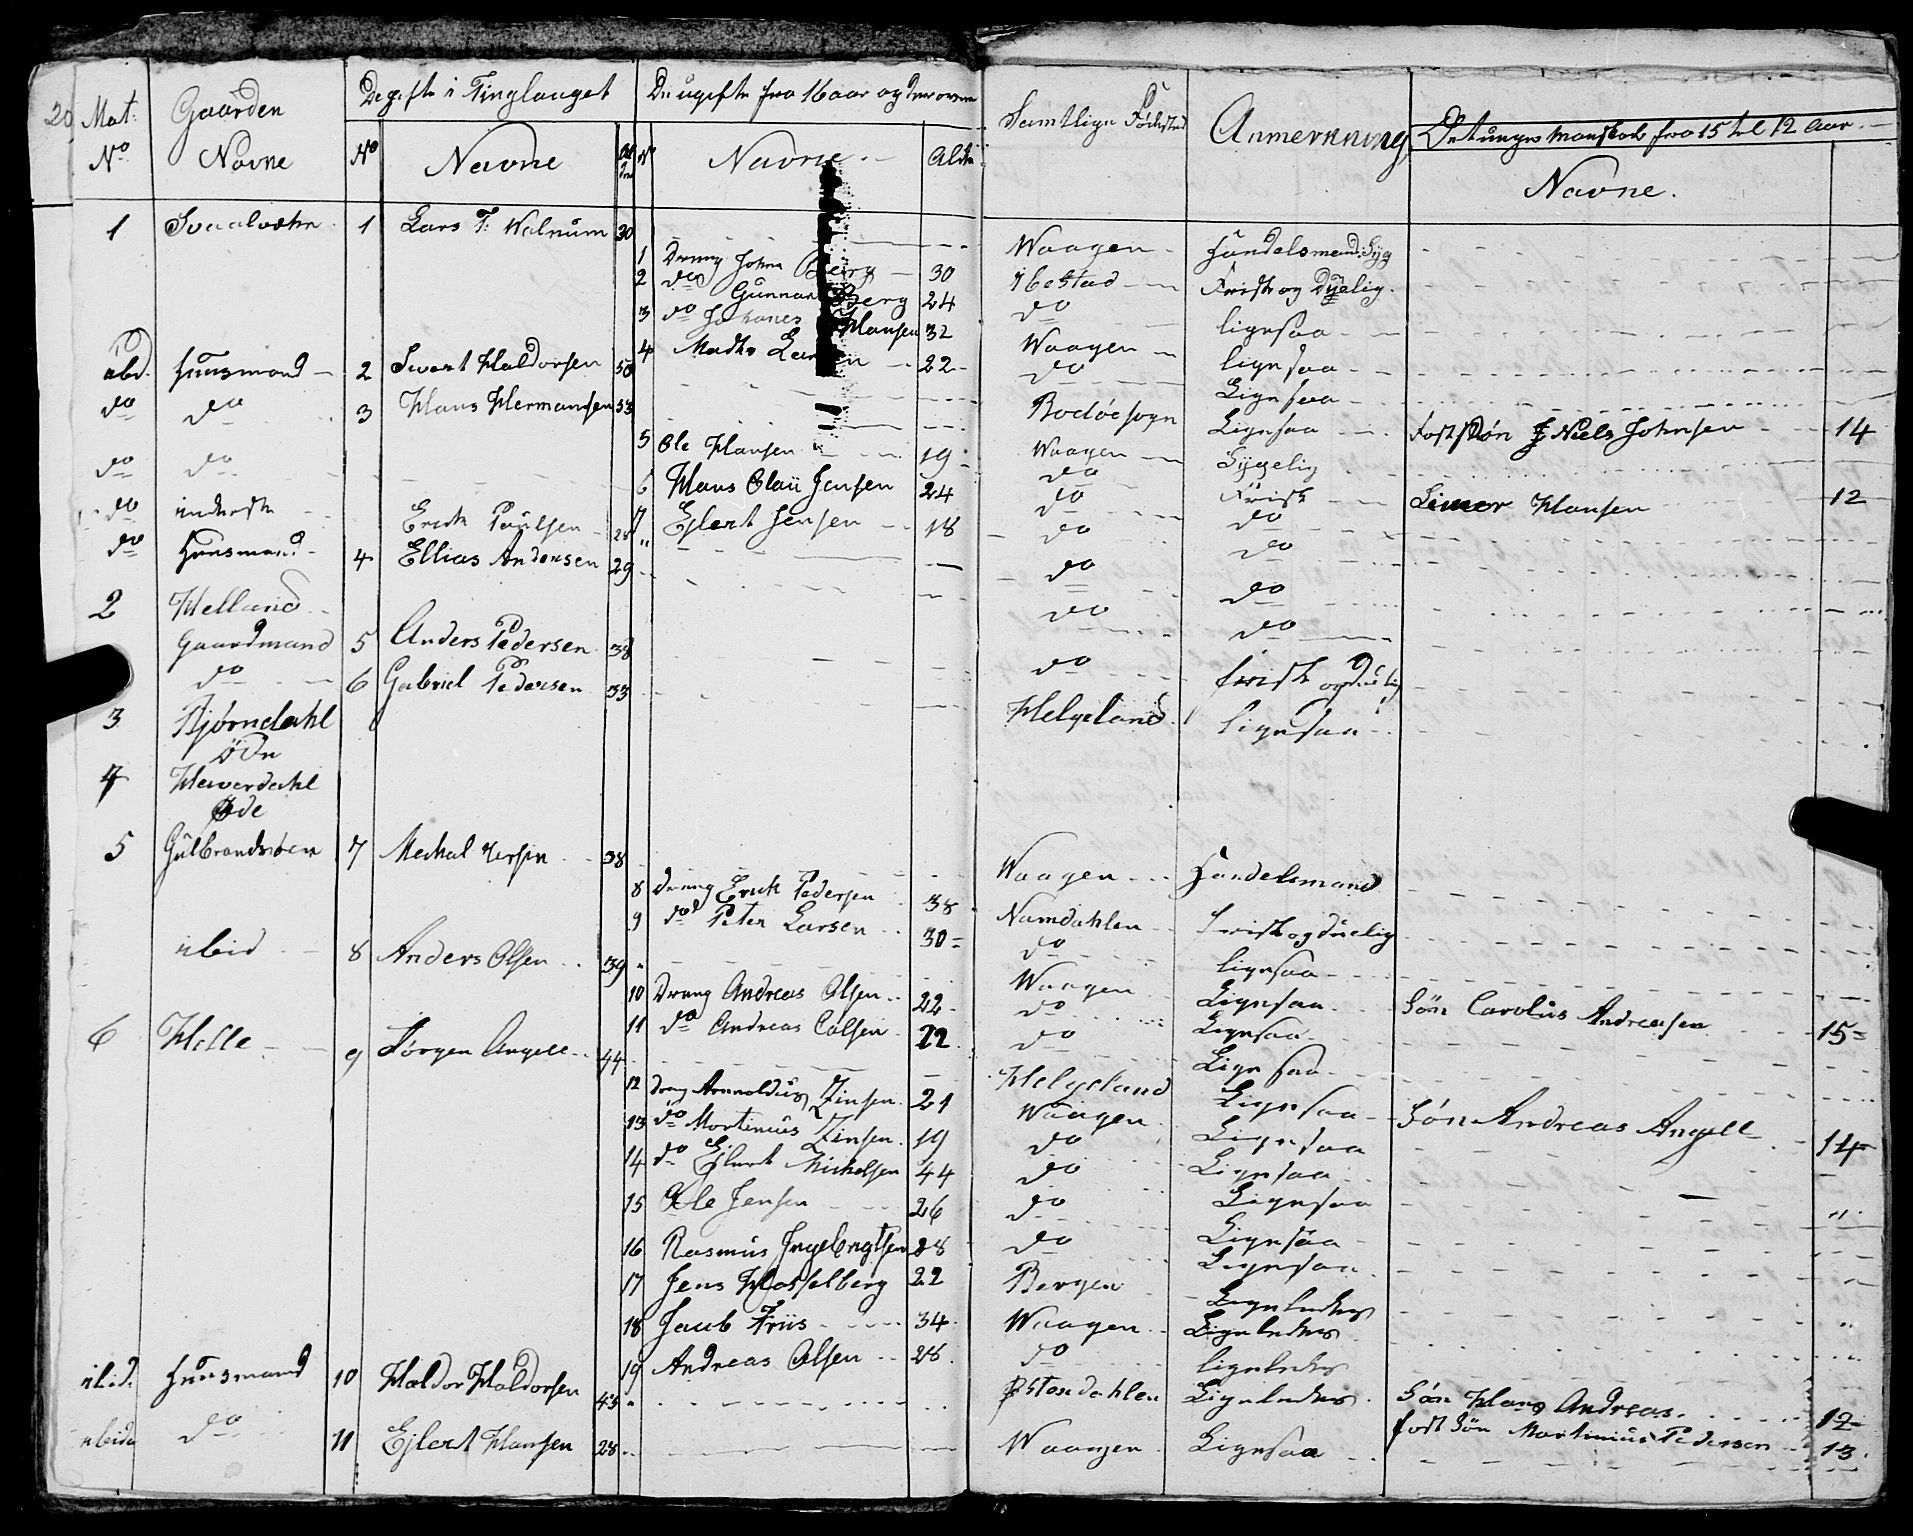 20 Mat: Gaarden De gifte i Tinglauget De ugifte fra 16 aar og derover Samtlige Fødested Anmerkning Det unge Manskab fra 15 til 12 Aar
No Navne No Navne No Navne Alder Navne.
1 Svaalvæhr 1 Lars F: Walnum 30 Waagen Handelsmand: Syg
1 Dreng Johan Berg 30 Ibestad Frisk og Dyelig.
2 do Gunnar Berg 24 do ligesaa
3 do Johanes Hansen 32 Waagen ligesaa
4 Mathis 22 do Ligesaa
ibd. Huusmand 2 Sivert Haldorsen 50
do do 3 Hans Hermansen 33 Bodøe sogn Ligesaa Fostsøn Niels Johnsen 14
5 Ole Hansen 19 Waagen Sygelig
do do 6 Hans Olaii Jensen 24 do Frisk Hansen 12
7 Ejlert Jensen 18 do do
do inderste Erich Paulsen 28 do do
do Huusmand 4 Ellias Andersen 29 do do
2 Helland
Gaardmand 5 Anders Pedersen 38 do do
do 6 Gabriel Pedersen 33 do frisk og duelig
3 Bjørndahl Helgeland ligesaa
øde
4 Hawerdahl
Øde
5 Gulbrandsøen 7 Mechal 38 Waagen Handelsmand
8 dreng Erich Pedersen 38 Namdahlen frisk og duelig
9 do Peter Larsen 30 do ligesaa
ibid 8 Anders Olsen 39 Waagen Ligesaa Søn Carolus Andreasen 15
10 Dreng Andreas Olsen 22 do Ligesaa
11 do Andreas Colsen 22 do Ligesaa
6 Helle 9 Jørgen Angell 44 Helgeland Ligesaa Søn Andreas Angell 14
12 dreng Arnnoldus Zinsen 21 Waagen Ligesaa
13 do Mortinius Zinsen 19 do Ligesaa
14 do Ejlert Michelsen 44 do Ligesaa
15 Ole Jensen 26 do Ligesaa
16 Rasmus Ingebrigtsen 28 do Ligesaa
17 Jens Hasselberg 22 Bergen Ligeledes
18 Jacob Friis 34 Waagen Ligeledes
19 Andreas Olsen 28 do ligeledes
ibid. Huusmand 10 Haldor Haldorsen 45 Østerdahlen Ligeledes Søn Hans Andreas 12
ibid do 11 Ejlert Hansen 28 Waagen Ligesaa fost Søn Martinius Pedersen 13